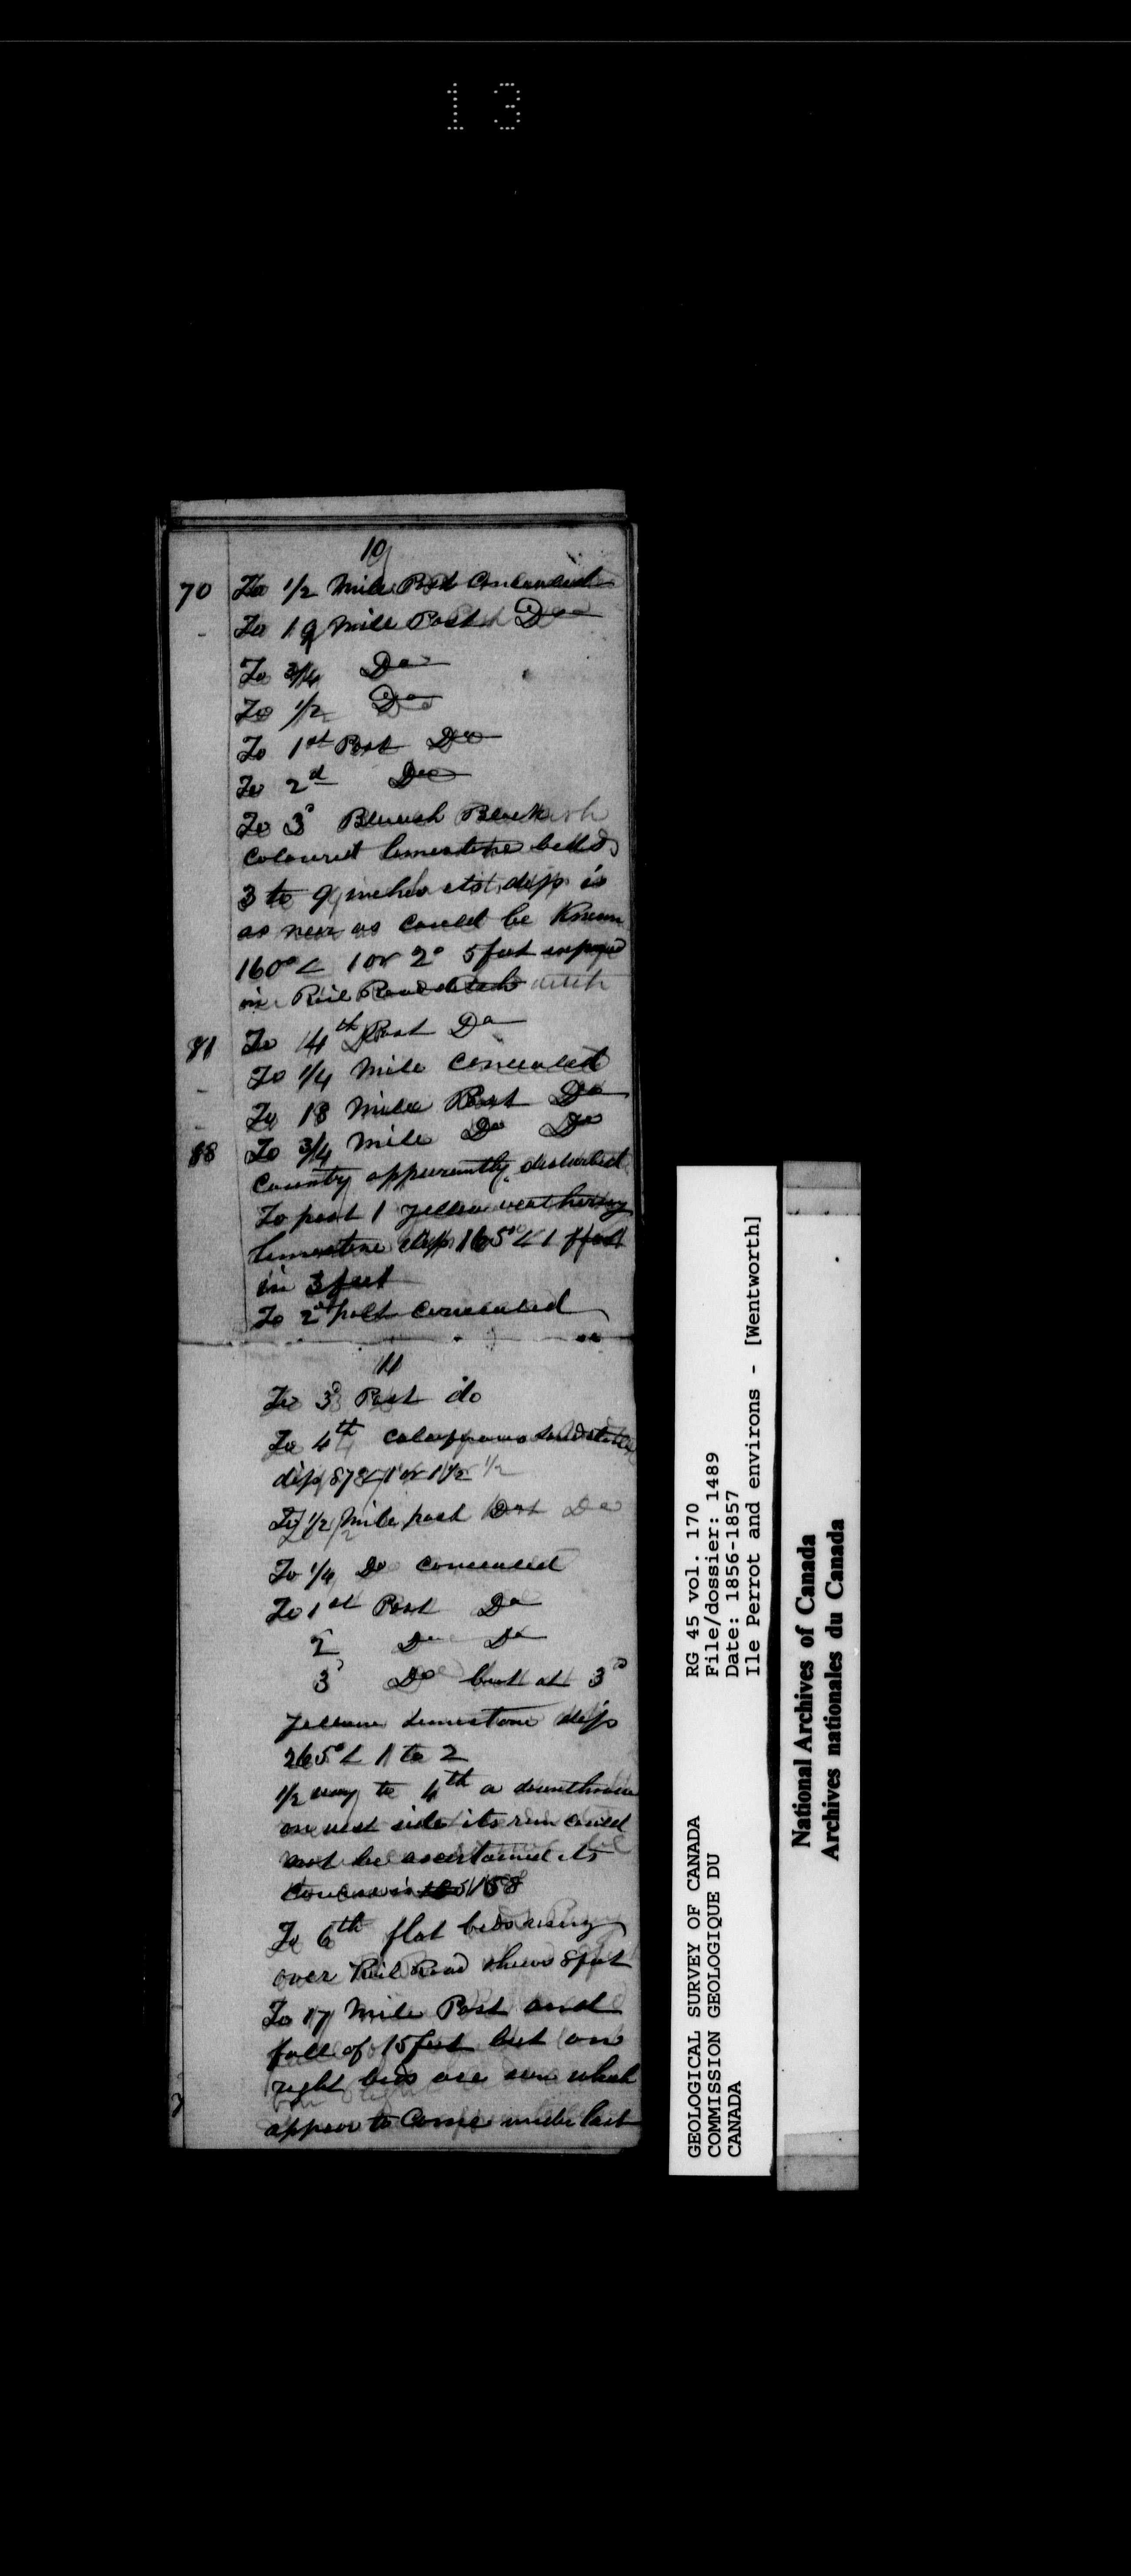 13
10
70 To 1/2 Mile Post Concealed
- To 19 Mile Post Do
To 3/4 Do
To 1/2 Do
To 1st Post Do
To 2d Do
To 3d Blueish Blackish
coloured limestone beds
3 to 9 inches its dip is
as near as could be Known
160° < 1 or 2° 5 feet exposed
in Rail Road ditch
81 To 4th Post Do
- To 1/4 Mile Concealed
- To 18 Mile Post Do
88 To 3/4 Mile Do Do
County apparently disturbed
To post 1 yellow weathering
limestone dip 165° < 1 foot
in 3 feet
To 2d post concealed
11
To 3d Post do
To 4th
dip 87 < 1 or 1 1/2
To 1/2 Mile post Do
To 1/4 Do concealed
To 1st Post Do
2 Do Do
3d Do but at 3d
yellow limestone dip
265° < 1 to 2
1/2 way to 4th a downthrow
on west side its run could
not be ascertained its
course is 158
To 6th flat beds rising
over Rail Road shews 8 feet
To 17 Mile Post and
fall of 15 feet but on
right beds are seen which
appear to come under last
GEOLOGICAL SURVEY OF CANADA
COMMISSION GEOLOGIQUE DU
CANADA
RG 45 vol. 170
File/dossier: 1489
Date: 1856-1857
Ile Perrot and environs - [Wentworth]
National Archives of Canada
Archives nationales du Canada